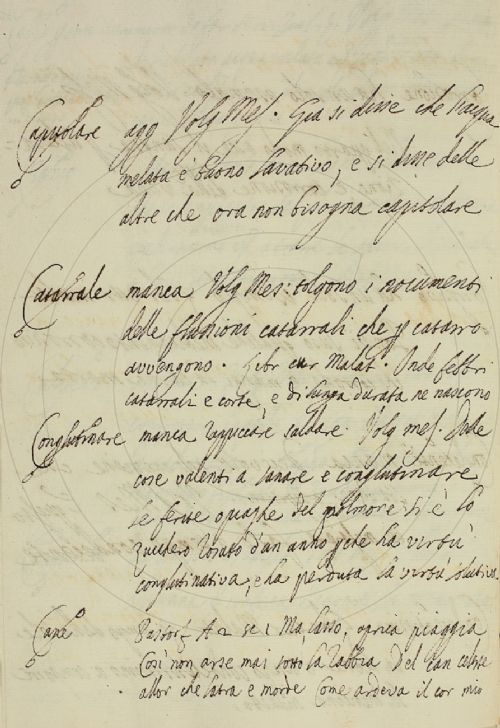 Capitolare agg Volg Mes. Gia si disse che l'acqua
melata è buono lavativo, e si disse delle
altre che ora non bisogna capitolare
Catarrale manca Volg Mes: tolgono i nocumenti
delle flussioni catarrali che p catarro
avvengono. Libr cur Malat. Onde febbri
catarrali e corte, e di lunga durata ne nascono
Conglutinare manca rappiccare saldare. Volg mes. Delle
cose valenti a sanare e conglutinare
le ferite o piaghe del polmone si è lo
zucchero rosato d'un anno pche ha virtù
conglutinativa, e ha perduta la virtù solutiva.
Cane Pastorf A 2 se 1 Ma lasso, ogni piaggia
Così non arse mai sotto la rabbia Del can celeste
allor che latra e morde Come ardeva il cor mio